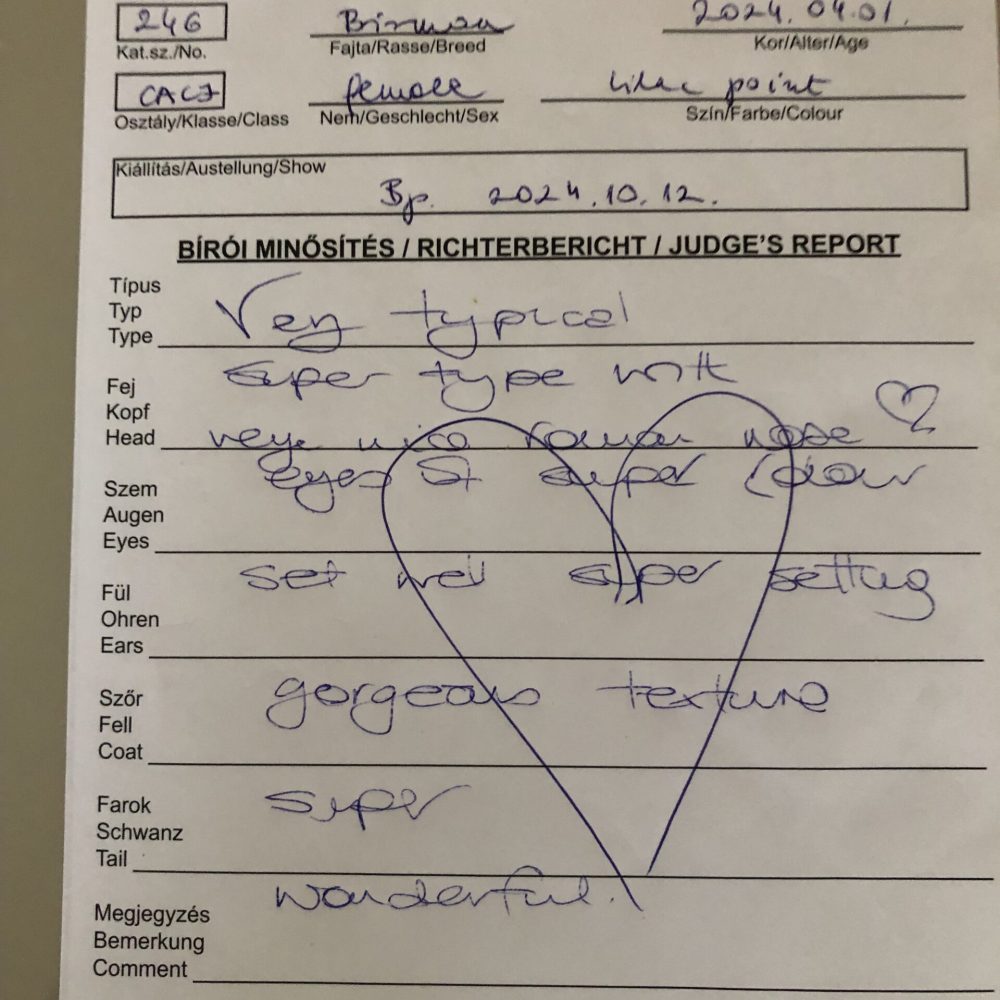 246 Birman 2024.04.01.
Kat.sz./No. Fajta/Rasse/Breed Kor/Alter/Age
CACJ female lilac point
Osztály/Klasse/Class Nem/Geschlecht/Sex Szín/Farbe/Colour
Kiállítás/Austellung/Show
Bp. 2024.10.12.
BÍRÓI MINŐSÍTÉS / RICHTERBERICHT / JUDGE'S REPORT
Típus
Typ Very typical
Type
super type with
Fej
Kopf
Head very nice roman nose
eyes of super colour
Szem
Augen
Eyes
set well super setting
Fül
Ohren
Ears
Szőr gorgeous texture
Fell
Coat
Farok super
Schwanz
Tail
wonderful.
Megjegyzés
Bemerkung
Comment